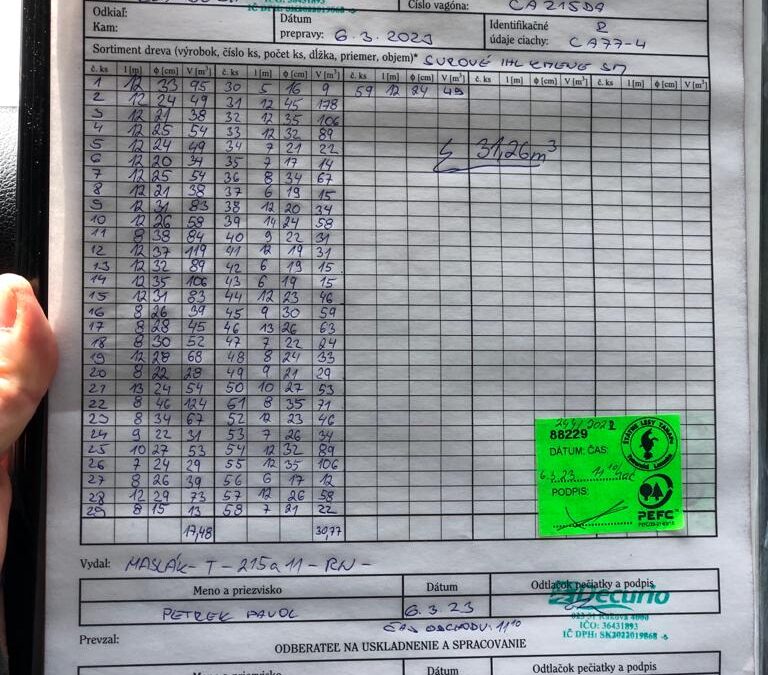 IČO: 36431893
IČ DPH: SK2022019868 -5-
Číslo vagóna: CA215DA
Odkiaľ:
Kam:
Dátum
prepravy: 6.3.2023
Identifikačné
údaje ciachy: CA77-4
Sortiment dreva (výrobok, číslo ks, počet ks, dĺžka, priemer, objem)* SUROVÉ IHL KMENE SM
č. ks l [m] ϕ [cm] V [m³] č. ks l [m] ϕ [cm] V [m³] č. ks l [m] ϕ [cm] V [m³] č. ks l [m] ϕ [cm] V [m³] č. ks l [m] ϕ [cm] V [m³]
1 12 33 95 30 5 16 9 59 12 24 49
2 12 24 49 31 12 45 178
3 12 21 38 32 12 35 106
4 12 25 54 33 12 32 89
5 12 24 49 34 7 21 22
Σ 31,26m³
6 12 20 34 35 7 17 14
7 12 25 54 36 8 34 67
8 12 21 38 37 6 19 15
9 12 31 83 38 12 20 34
10 12 26 58 39 14 24 58
11 8 38 84 40 9 22 31
12 12 37 119 41 12 19 31
13 12 32 89 42 6 19 15
14 12 35 106 43 6 19 15
15 12 31 83 44 12 23 46
16 8 26 39 45 9 30 59
17 8 28 45 46 13 26 63
18 8 30 52 47 7 22 24
19 12 28 68 48 8 24 33
20 8 22 28 49 9 21 29
21 13 24 54 50 10 27 53
22 8 46 124 51 8 35 71
23 8 34 67 52 12 23 46
24 9 22 31 53 7 26 34
25 10 27 53 54 12 32 89
26 7 24 29 55 12 35 106
27 8 26 39 56 6 17 12
28 12 29 73 57 12 26 58
29 8 15 13 58 7 21 22
17,48 30,77
88229
DÁTUM: ČAS:
6.3.23 11¹⁰
PODPIS:
ŠTÁTNE LESY TANAPU
PEFC
Vydal: MASLÁK - T - 215a11 - RN -
Meno a priezvisko Dátum Odtlačok pečiatky a podpis
PETREK PAVOL 6.3.23
Decurio
023 51 Raková 4000
IČO: 36431893
IČ DPH: SK2022019868 -5-
ČAS ODCHODU: 11¹⁰
Prevzal:
ODBERATEĽ NA USKLADNENIE A SPRACOVANIE
Meno a priezvisko Dátum Odtlačok pečiatky a podpis